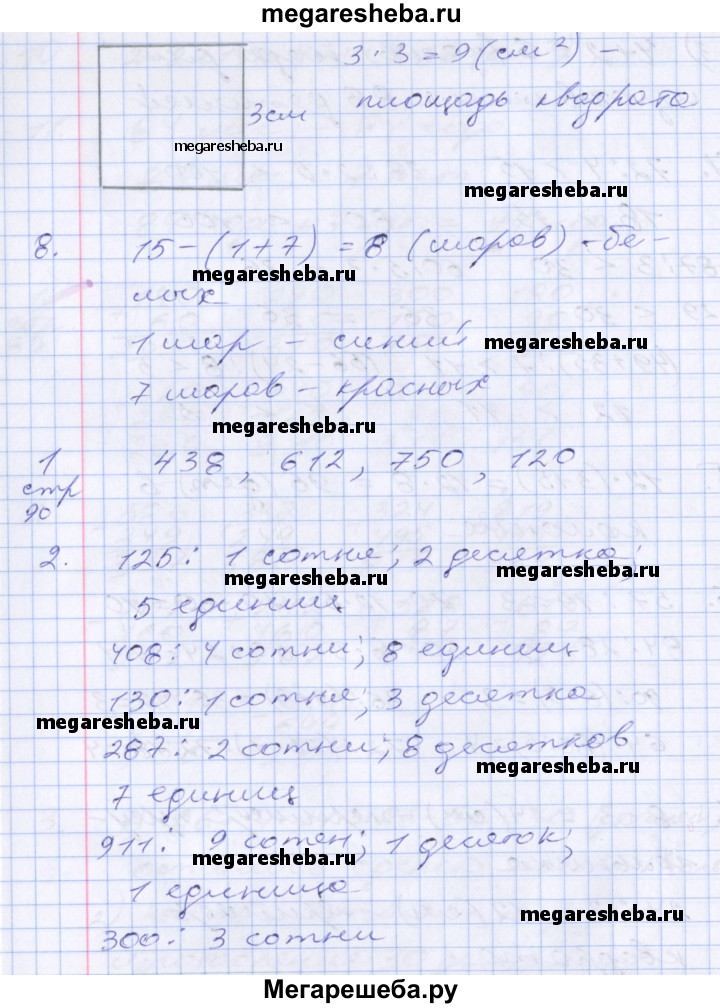 megaresheba.ru
3 · 3 = 9 (см²) –
3см площадь квадрата
megaresheba.ru
megaresheba.ru
8. 15 – (1 + 7) = 8 (шаров) – бе-
megaresheba.ru
лых
1 шар – синий
megaresheba.ru
7 шаров – красных
megaresheba.ru
1 438, 612, 750, 120
стр
90
2. 125: 1 сотня; 2 десятка;
megaresheba.ru
megaresheba.ru
5 единиц
408: 4 сотни; 8 единиц
130: 1 сотня; 3 десятка
megaresheba.ru
287: 2 сотни; 8 десятков
megaresheba.ru
7 единиц
911: 9 сотен; 1 десяток;
megaresheba.ru
1 единица
megaresheba.ru
300: 3 сотни
Мегарешеба.ру